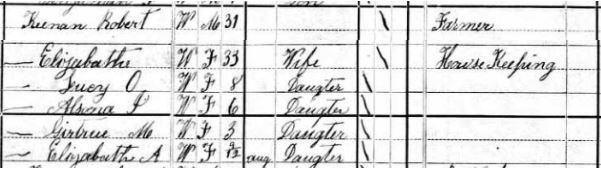 Keenan Robert W M 31 Farmer
— Elizabethe W F 33 Wife House Keeping
— Lucy O W F 8 Daugter
— W F 6 Daugter
— Girtrue M W F 3 Daugter
— Elizabethe A W F 9/12 aug Daugter